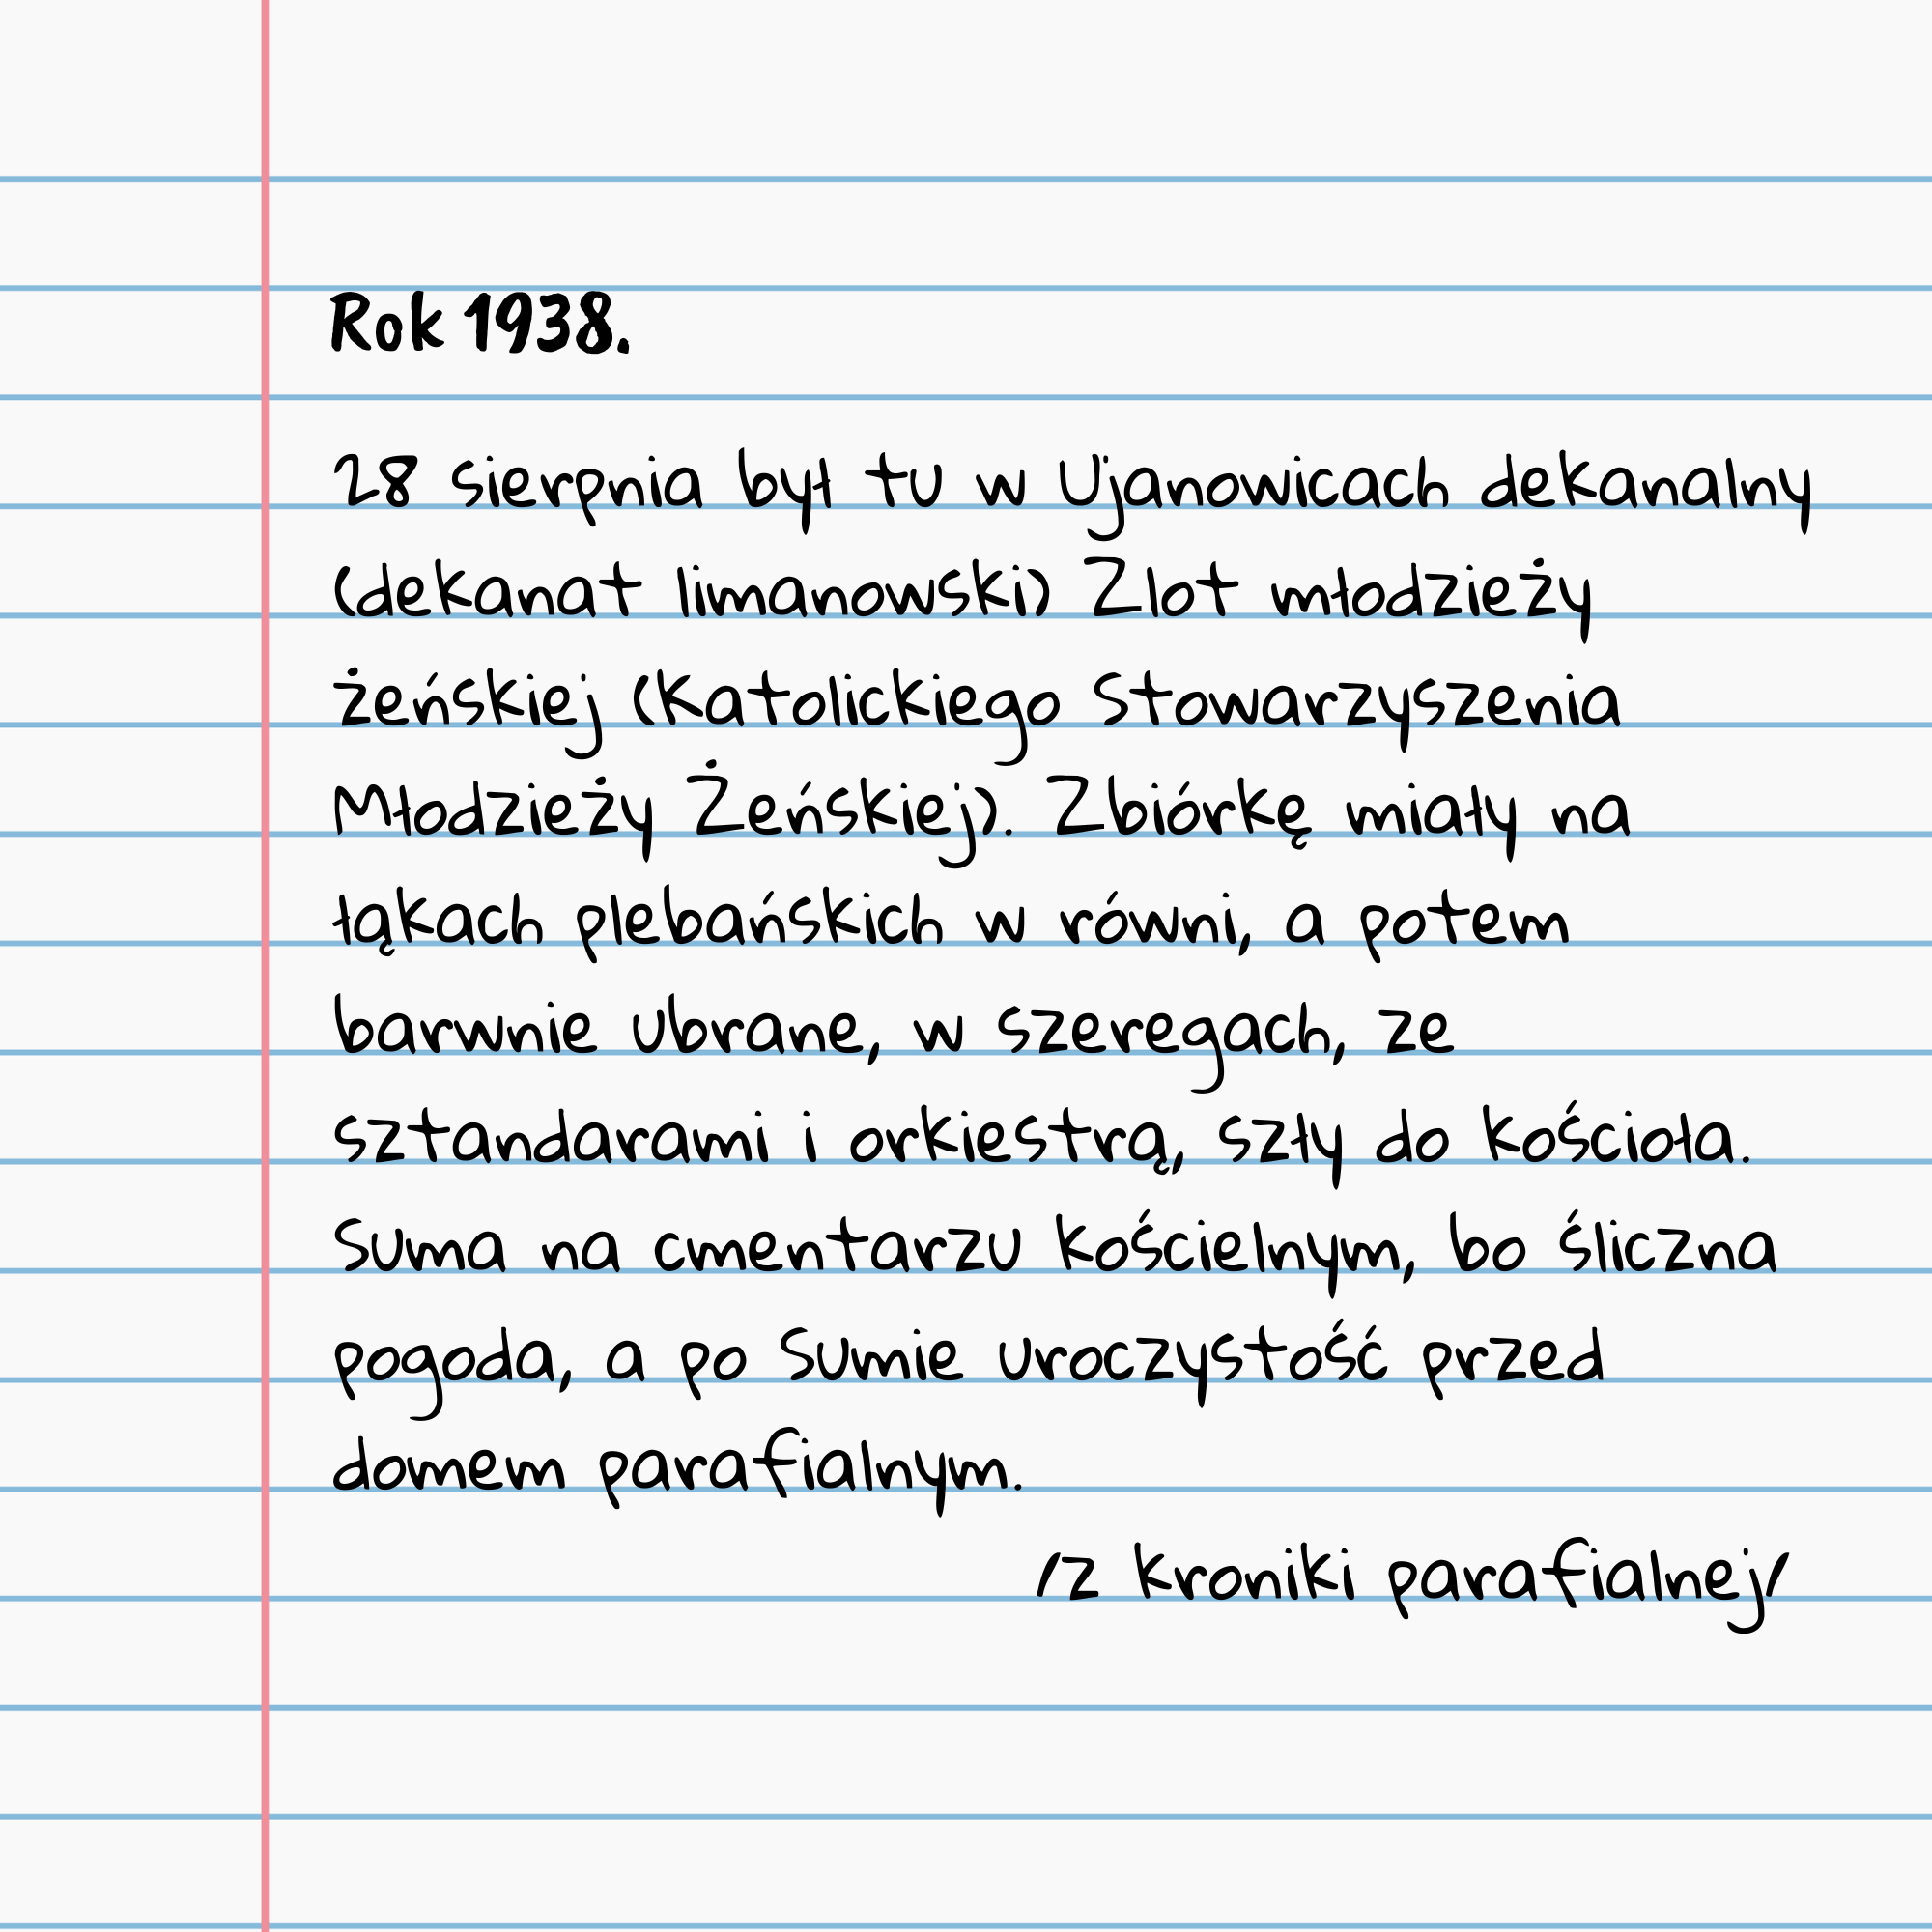 Rok 1938.
28 sierpnia był tu w Ujanowicach dekanalny
(dekanat limanowski) Zlot młodzieży
żeńskiej (Katolickiego Stowarzyszenia
Młodzieży Żeńskiej). Zbiórkę miały na
łąkach plebańskich w równi, a potem
barwnie ubrane, w szeregach, ze
sztandarami i orkiestrą, szły do kościoła.
Suma na cmentarzu kościelnym, bo śliczna
pogoda, a po Sumie uroczystość przed
domem parafialnym.
/z kroniki parafialnej/